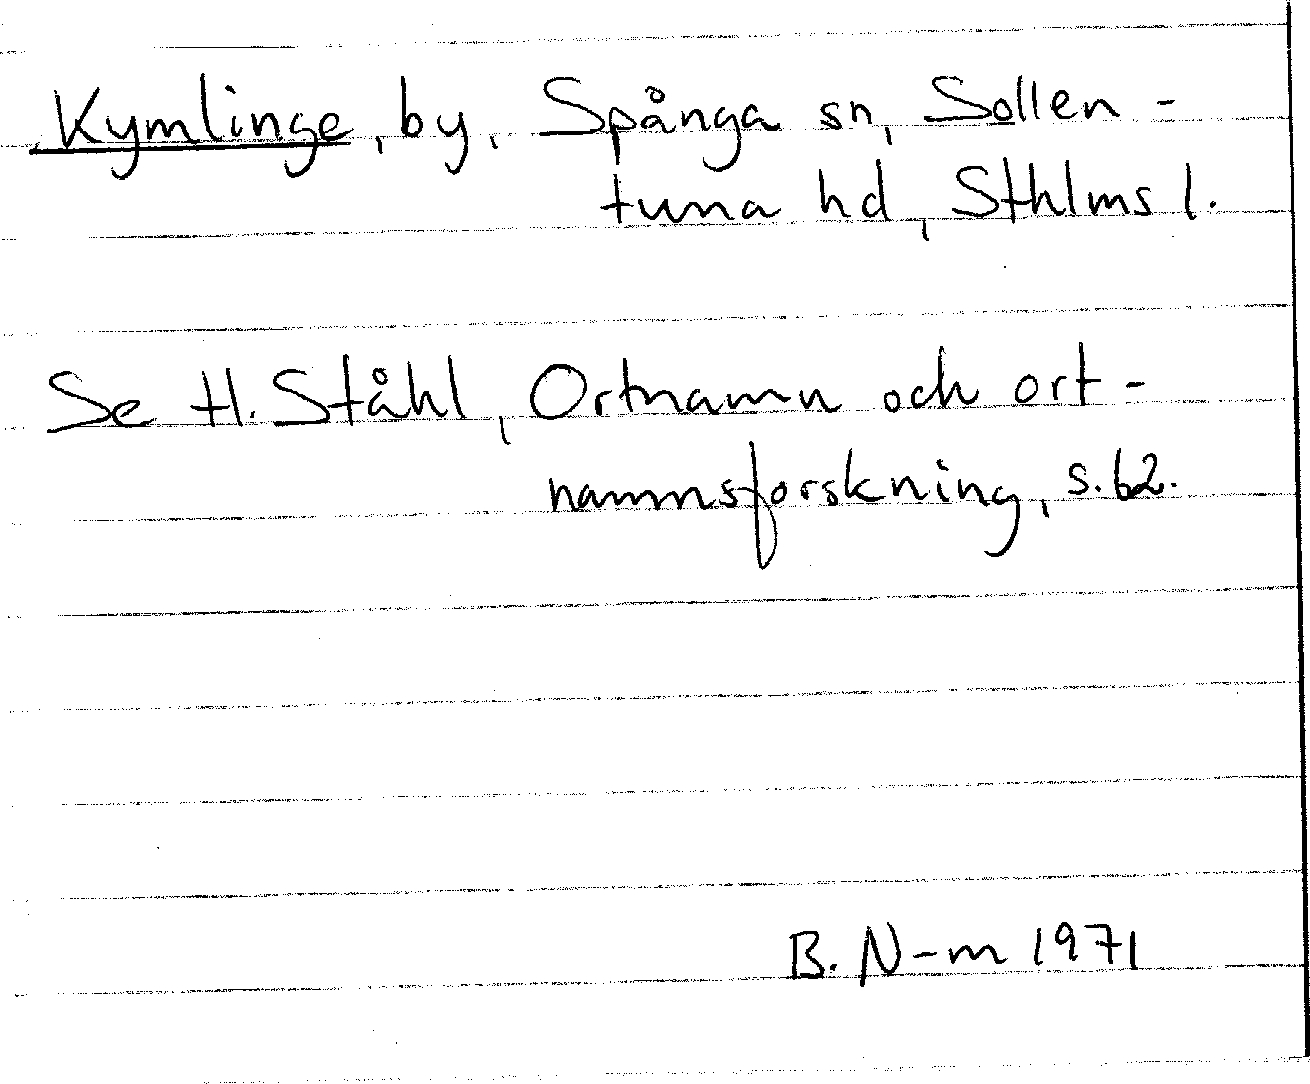 Kymlinge, by, Spånga sn, Sollen-
tuna hd, Sthlms l.
Se H. Ståhl, Ortnamn och ort-
namnsforskning, s. 62.
B. N-m 1971